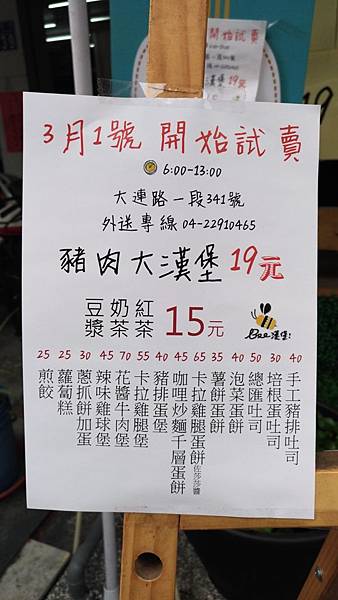 3月1號 開始試賣
6:00-13:00
大連路一段341號
外送專線 04-22910465
豬肉大漢堡 19元
紅茶
奶茶
豆漿
15元
Bee漢堡!
25 25 30 45 70 55 40 45 65 35 40 50 30 40
手工豬排吐司
培根蛋吐司
總匯吐司
泡菜蛋餅
薯餅蛋餅
卡拉雞腿蛋餅佐莎莎醬
咖哩炒麵千層蛋餅
豬排蛋堡
卡拉雞腿堡
花醬牛肉堡
辣味雞球堡
蔥抓餅加蛋
蘿蔔糕
煎餃